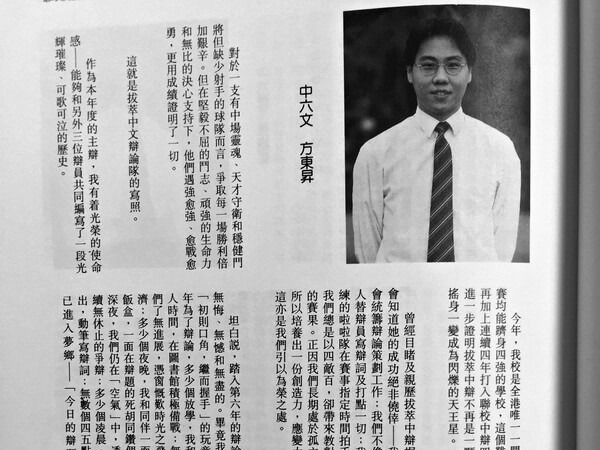 中六文 方東昇
對於一支有中場靈魂、天才守衛和穩健門
將但缺少射手的球隊而言，爭取每一場勝利倍
加艱辛。但在堅毅不屈的鬥志、頑強的生命力
和無比的決心支持下，他們遇強愈強、愈戰愈
勇，更用成績證明了一切。
這就是拔萃中文辯論隊的寫照。
作為本年度的主辯，我有着光榮的使命
感——能夠和另外三位辯員共同編寫了一段光
輝璀璨、可歌可泣的歷史。
今年，我校是全港唯一一
賽均能躋身四強的學校，這個
再加上連續四年打入聯校中辯四
進一步證明拔萃中辯不再是一
搖身一變成為閃爍的天王星。
曾經目睹及親歷拔萃中辯
會知道她的成功絕非僥倖——我
會統籌辯論策劃工作；我們不
人替辯員寫辯詞及打點一切；我
練的啦啦隊在賽事指定時間拍手
我們總是以四敵百，卻帶來教
的賽果。正因我們長期處於孤
所以培養出一份創造力，應變
這亦是我們引以為榮之處。
坦白說，踏入第六年的辯論
無悔、無憾和無盡的。畢竟我
「初則口角，繼而握手」的玩意
年為了辯論，多少個放學，我和
人時間，在圖書館積極備戰；無
們了無進展，憑窗慨歎時光之
濟；多少個夜晚，我和同伴一面
飯盒，一面在辯題的死胡同鑽
深夜，我們仍在「空氣」中，
續無休止的爭辯；多少個凌晨
出，動筆寫辯詞；無數個四五點
已進入夢鄉——「今日的辯